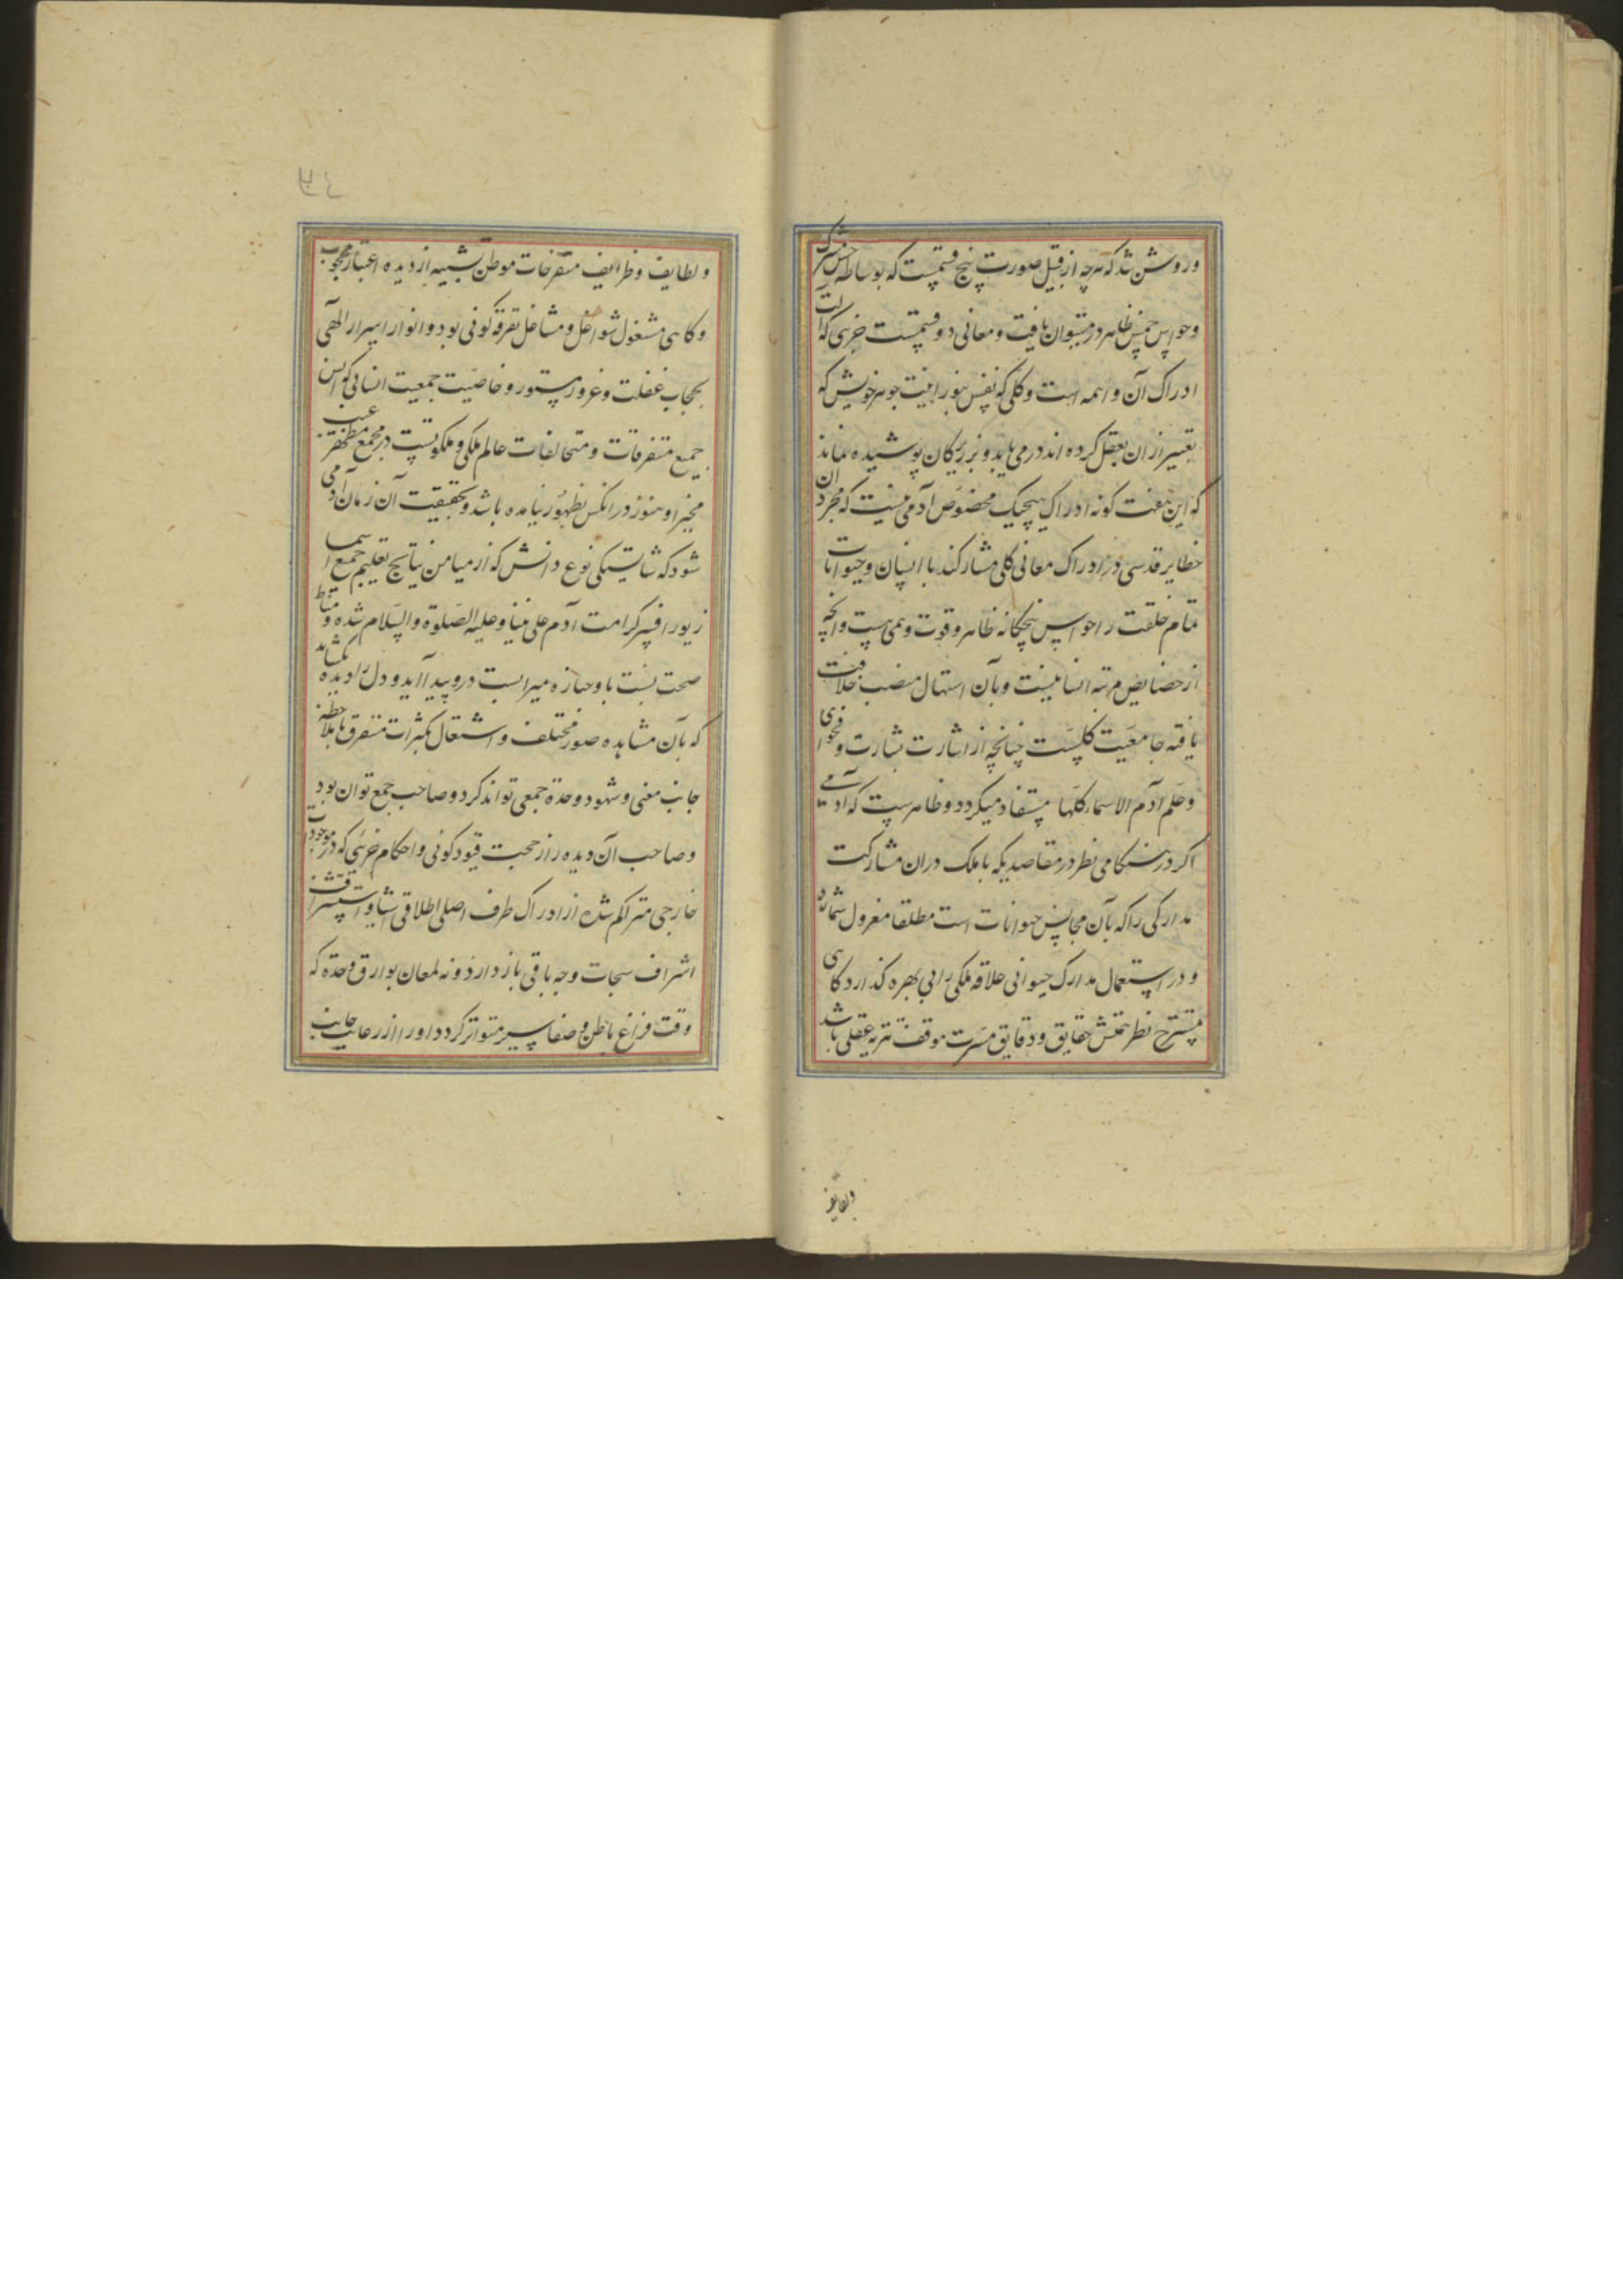 وروشن شد که هرچه از قبیل صورت پنج قسمیت که بوساطه حس مشترک
وحواس خمس ظاهر در میتوان یافت و معانی دو قسمست جزئی که الت
ادراک آن واهمه است وکلی که نفس بنورانیت جوهر خویش که
تعبیر از ان بعقل کرده اند در می یابد و بر زیرکان پوشیده نماند
که این هفت کونه ادراک هیچیک مخصوص آدمی نیست که مجردان
حظایر قدسی در ادراک معانی کلی مشارکند با انسان وحیوانات
تمام خلقت را حواس پنجکانه ظاهر و قوت وهمی هست وانچه
از خصایص مرتبه انسانیست وبآن استهال منصب خلافت
یافته جامعیت کلیست چنانچه از اشارت بشارت و فحوای
وعلم آدم الاسماء کلها مستفاد میکردد وظاهرست که آدمی
اکر در هنکامی نظر در مقاصدی که با ملک دران مشارکت
مدارکی را که بآن مجانس حیوانات است مطلقا معزول شمارد
و در استعمال مدارک حیوانی علاقه ملکی را بی بهره کذارد کاهی
مسترح نظر همتش حقایق ودقایق مسرت موقف تنزیه عقلی باشد
ولطایف
ولطایف وظرایف متفرحات موطن تشبیه از دیده اعتبار محجوب
وکاهی مشغول شواغل ومشاغل تفرقه کونی بود وانوار اسرار الهی
بحجاب غفلت وغرور مستور وخاصیت جمعیت انسانی که آیس
جمیع متفرقات ومتخالفات عالم ملکی وملکوتیست در مجمع مظهر
مخبر او هنوز در انکس بظهور نیامده باشد وبحقیقت آن زمان آدمی
شود که شایستکی نوع دانش که از میامن نتایج تعلیم جمیع اسما
زیور افسر کرامت آدم علی نبینا وعلیه الصلوة والسلام شده ومناط
صحت نسبت با وحیازه میراست در وپدید آید ودل را دیده بکشاید
که بآن مشاهده صور مختلف واشتغال بکثرات متفرق با ملاحظه
جانب معنی وشهود وحدة جمعی تواند کرد وصاحب جمع توان بود
وصاحب آن دیده را زحمت قیود کونی واحکام جزئی که در موجودات
خارجی متراکم شده از ادراک طرف اصلی اطلاقی اشیا و استشراف
اشراف سبحات وجه باقی باز دارد ونه لمعان بوارق وحدة که
وقت فراغ باطن وصفا سیر متواتر کردد او را از رعایت جانب